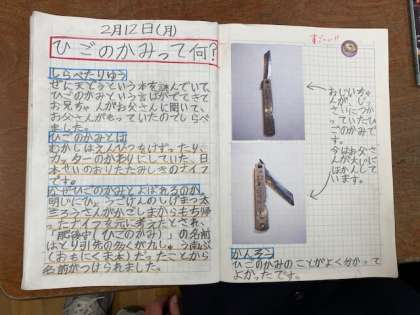 2月12日(月)
ひごのかみって何?
しらべたりゆう
ぜん天どうという本を読んでいて、
ひごのかみという言ばがでてきて
お兄ちゃんがお父さんに聞いて、
お父さんがもっていたのでしらべ
ました。
ひごのかみとは
むかしはえんぴつをけずったり、
カッターのかわりにしていた、日
本せいのおりたたみしきのナイフ
です。
なぜひごのかみとよばれるのか。
明じにひょうごけんのしげまつ太
三ろうさんがかごしまからもち帰
ったナイフを元に考あんされ、
「肥後守(ひごのかみ)」の名前
はとり引先の多くが九しゅう南ぶ
(おもにくま本)だったことから
名前がつけられました。
すごーい!!
おじいちゃ
んが、じっ
さいにつか
っていたひ
ごのかみで
す。
今はお父さ
んが大じに
ほかんして
います。
かんそう
ひごのかみのことがよく分かって
よかったです。